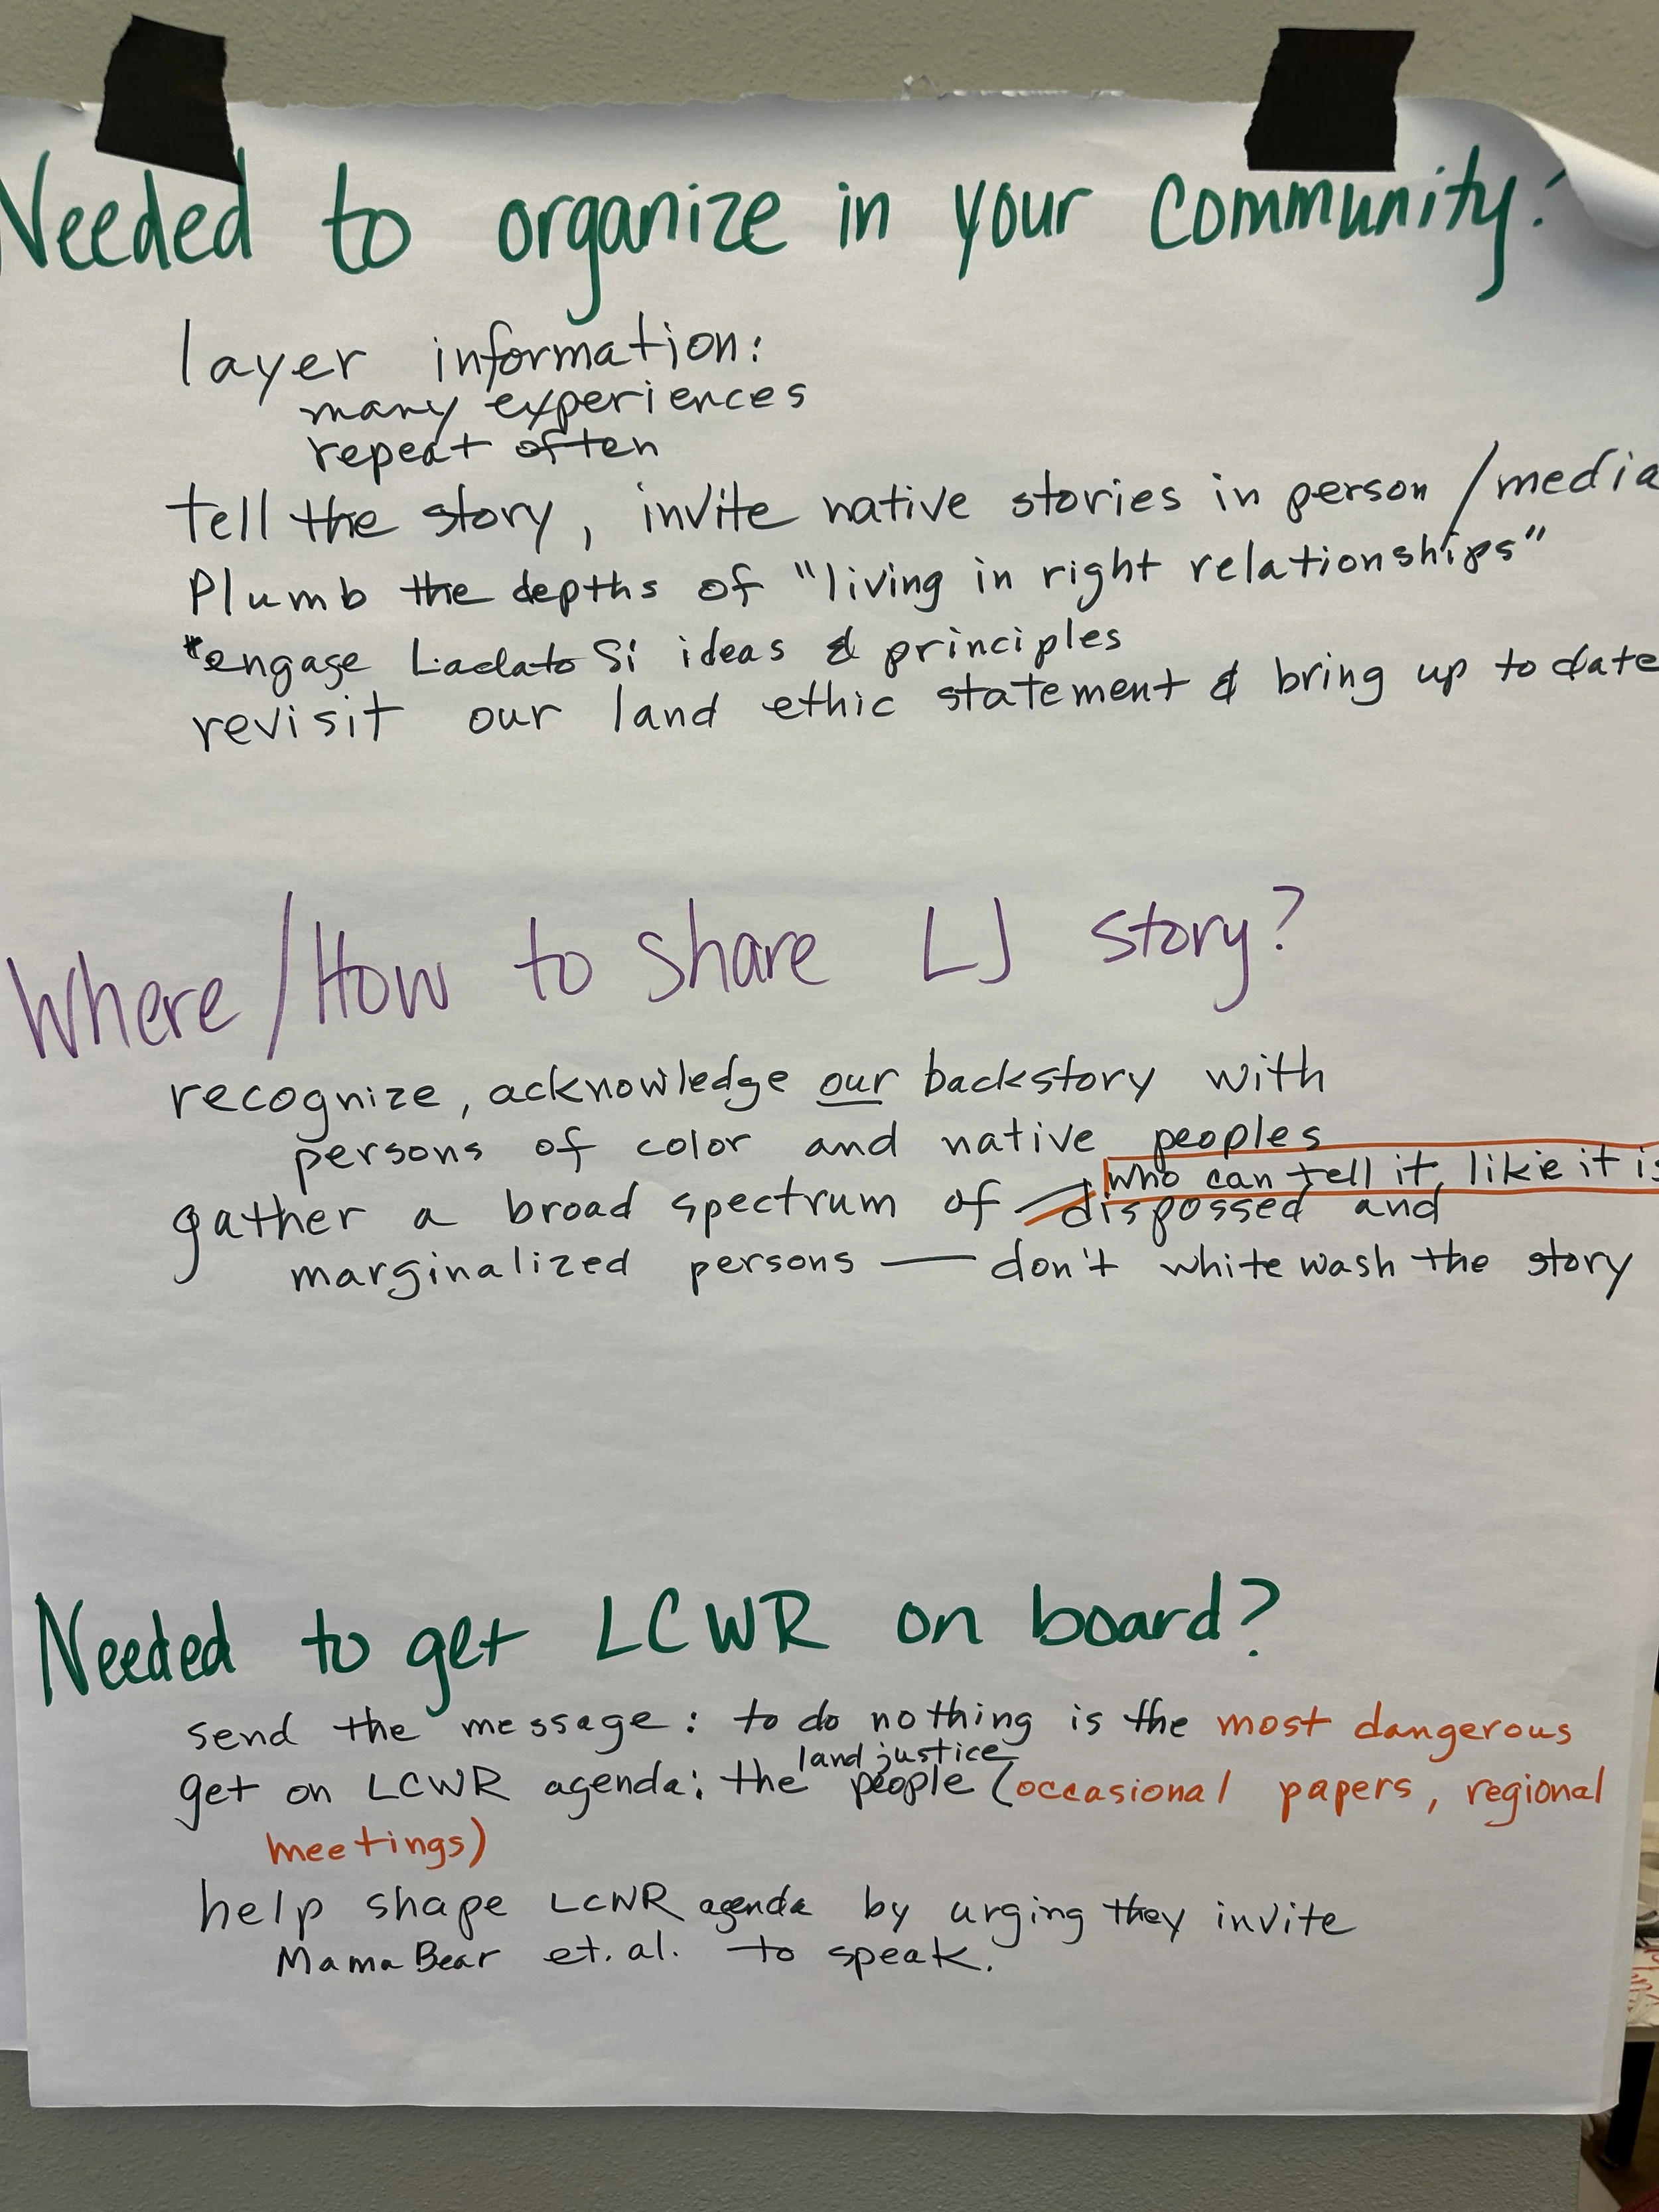 Needed to organize in your community?
layer information:
many experiences
repeat often
tell the story, invite native stories in person / media
Plumb the depths of "living in right relationships"
*engage Laudato Si ideas & principles
revisit our land ethic statement & bring up to date
Where / How to share LJ story?
recognize, acknowledge our backstory with
persons of color and native peoples
who can tell it like it is
gather a broad spectrum of dispossed and
marginalized persons — don't white wash the story
Needed to get LCWR on board?
send the message: to do nothing is the most dangerous
land justice
get on LCWR agenda: the people (occasional papers, regional
meetings)
help shape LCWR agenda by urging they invite
Mama Bear et. al. to speak.